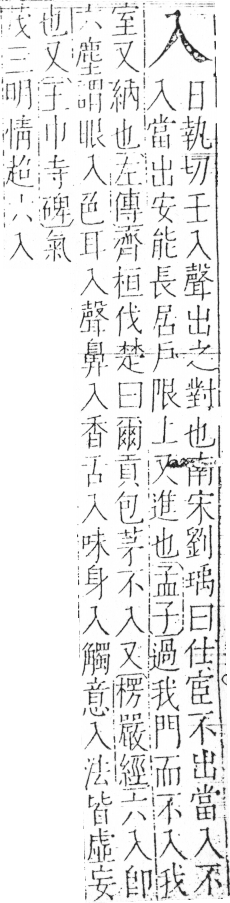 入
日執切壬入聲出之對也南宋劉瑀曰仕宦不出當入不
入當出安能長居戶限上又進也孟子過我門而不入我
室又納也左傳齊桓伐楚曰爾貢包茅不入又楞嚴經六入卽
六塵謂眼入色耳入聲鼻入香舌入味身入觸意入法皆虛妄
也又王巾寺碑氣
茂三明情超六入